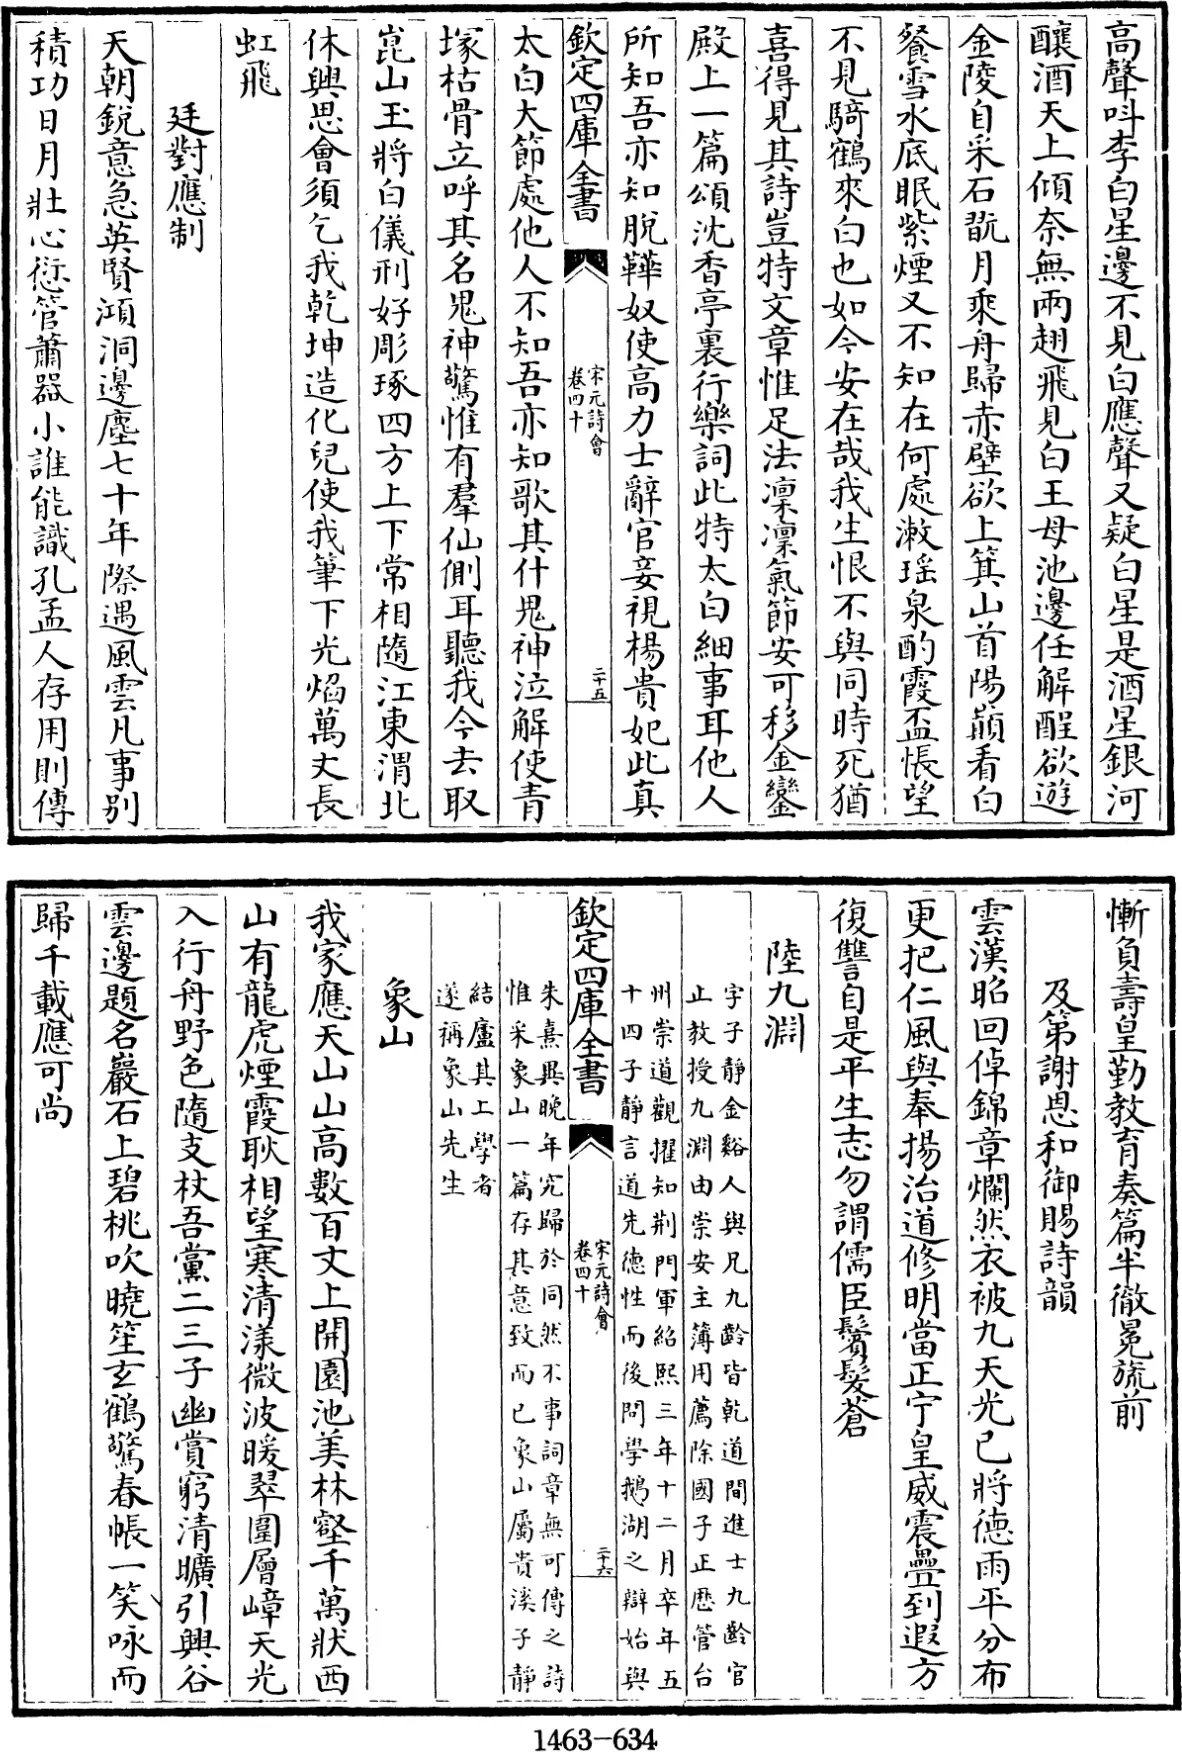 高聲呌李白星邊不見白應聲又疑白星是酒星銀河
釀酒天上傾奈無兩翅飛見白王母池邊任解酲欲遊
金陵自采石翫月乘舟歸赤壁欲上箕山首陽巔看白
餐雪水底眠紫煙又不知在何處漱瑶泉酌霞盃悵望
不見騎鶴來白也如今安在哉我生恨不與同時死猶
喜得見其詩豈特文章惟足法凜凜氣節安可移金鑾
殿上一篇頌沈香亭裏行樂詞此特太白細事耳他人
所知吾亦知脫鞾奴使高力士辭官妾視楊貴妃此真
欽定四庫全書
宋元詩會
卷四十
二十五
太白大節處他人不知吾亦知歌其什鬼神泣解使青
塚枯骨立呼其名鬼神驚惟有羣仙側耳聽我今去取
崑山玉將白儀刑好彫琢四方上下常相隨江東渭北
休興思會須乞我乾坤造化兒使我筆下光焰萬丈長
虹飛
廷對應制
天朝銳意急英賢澒洞邊塵七十年際遇風雲凡事別
積功日月壯心愆管蕭器小誰能識孔孟人存用則傳
慚負壽皇勤教育奏篇半徹冕旒前
及第謝恩和御賜詩韻
雲漢昭回倬錦章爛然衣被九天光已將德雨平分布
更把仁風與奉揚治道修明當正宁皇威震疊到遐方
復讐自是平生志勿謂儒臣鬢髮蒼
陸九淵
字子靜金谿人與兄九齡皆乾道間進士九齡官
止教授九淵由崇安主簿用薦除國子正歷管台
州崇道觀擢知荆門軍紹熙三年十二月卒年五
十四子靜言道先德性而後問學鵝湖之辯始與
朱熹異晚年究歸於同然不事詞章無可傳之詩
惟采象山一篇存其意致而已象山屬貴溪子靜
結廬其上學者
遂稱象山先生
欽定四庫全書
宋元詩會
卷四十
二十六
象山
我家應天山山高數百丈上開園池美林壑千萬狀西
山有龍虎煙霞耿相望寒清漾微波暖翠圍層嶂天光
入行舟野色隨支杖吾黨二三子幽賞窮清曠引興谷
雲邊題名巖石上碧桃吹曉笙玄鶴驚春帳一笑咏而
歸千載應可尚
1463-634